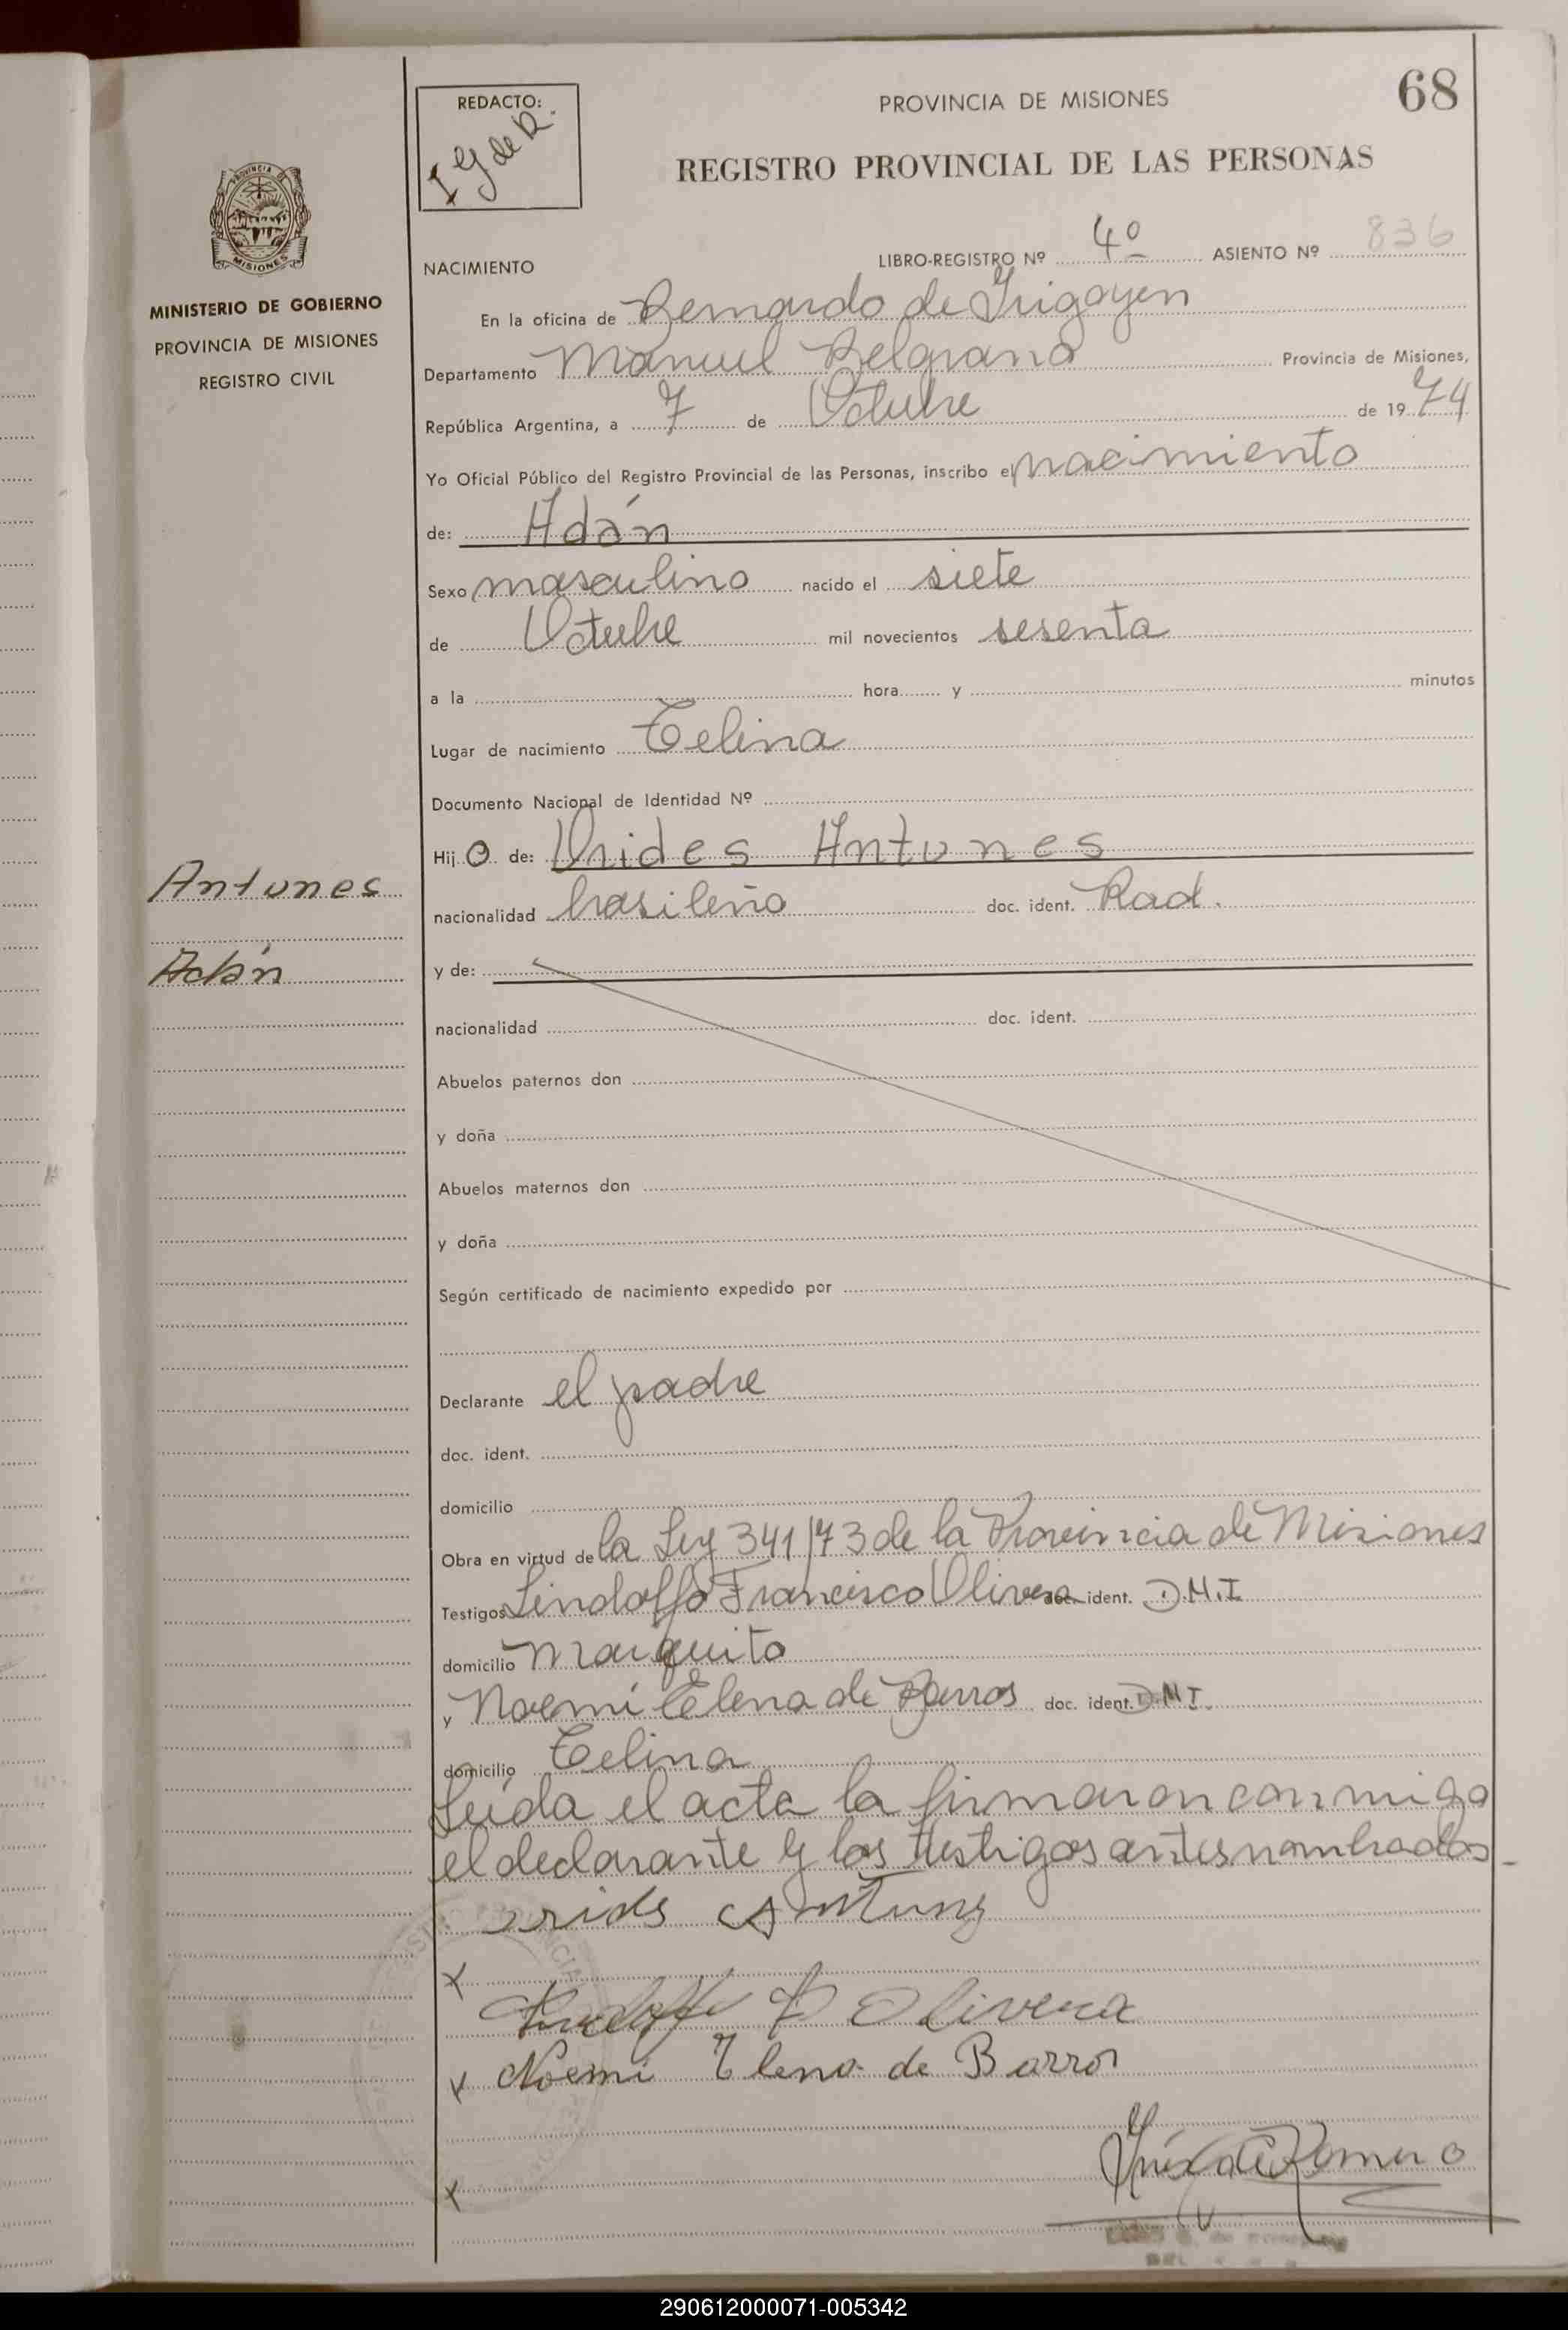 REDACTO:
I G de R.
PROVINCIA DE MISIONES
68
REGISTRO PROVINCIAL DE LAS PERSONAS
MISIONES
MINISTERIO DE GOBIERNO
PROVINCIA DE MISIONES
REGISTRO CIVIL
NACIMIENTO
LIBRO-REGISTRO Nº 4º ASIENTO Nº 836
En la oficina de Bernardo de Irigoyen
Departamento Manuel Belgrano Provincia de Misiones,
República Argentina, a 7 de Octubre de 19 74
Yo Oficial Público del Registro Provincial de las Personas, inscribo el nacimiento
de: Adán
Sexo masculino nacido el siete
de Octubre mil novecientos sesenta
a la hora y minutos
Lugar de nacimiento Celina
Documento Nacional de Identidad Nº
Hij o de: Orides Antunes
Antunes
nacionalidad brasileño doc. ident. Rad.
Adán
y de:
nacionalidad doc. ident.
Abuelos paternos don
y doña
Abuelos maternos don
y doña
Según certificado de nacimiento expedido por
Declarante el padre
doc. ident.
domicilio
Obra en virtud de la Ley 341/73 de la Provincia de Misiones
Testigos Lindolfo Francisco Olivera doc. ident. D.M.I
domicilio
y Noemí Elena de Barros doc. ident. D.M I.
domicilio Celina
Leída el acta la firmaron conmigo
el declarante y los testigos antes nombrados
x
F Olivera
x Noemi Elena de Barros
x
290612000071-005342